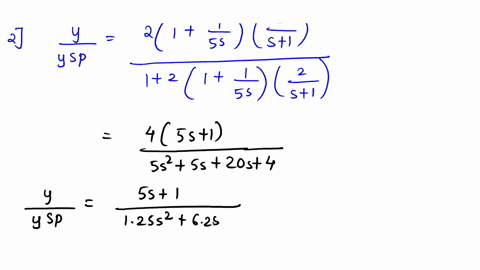 2] y/ysp = 2(1 + 1/5s)( /s+1) / 1+2(1 + 1/5s)(2/s+1)
= 4(5s+1) / 5s²+5s+20s+4
y/ysp = 5s+1 / 1.25s²+6.2s